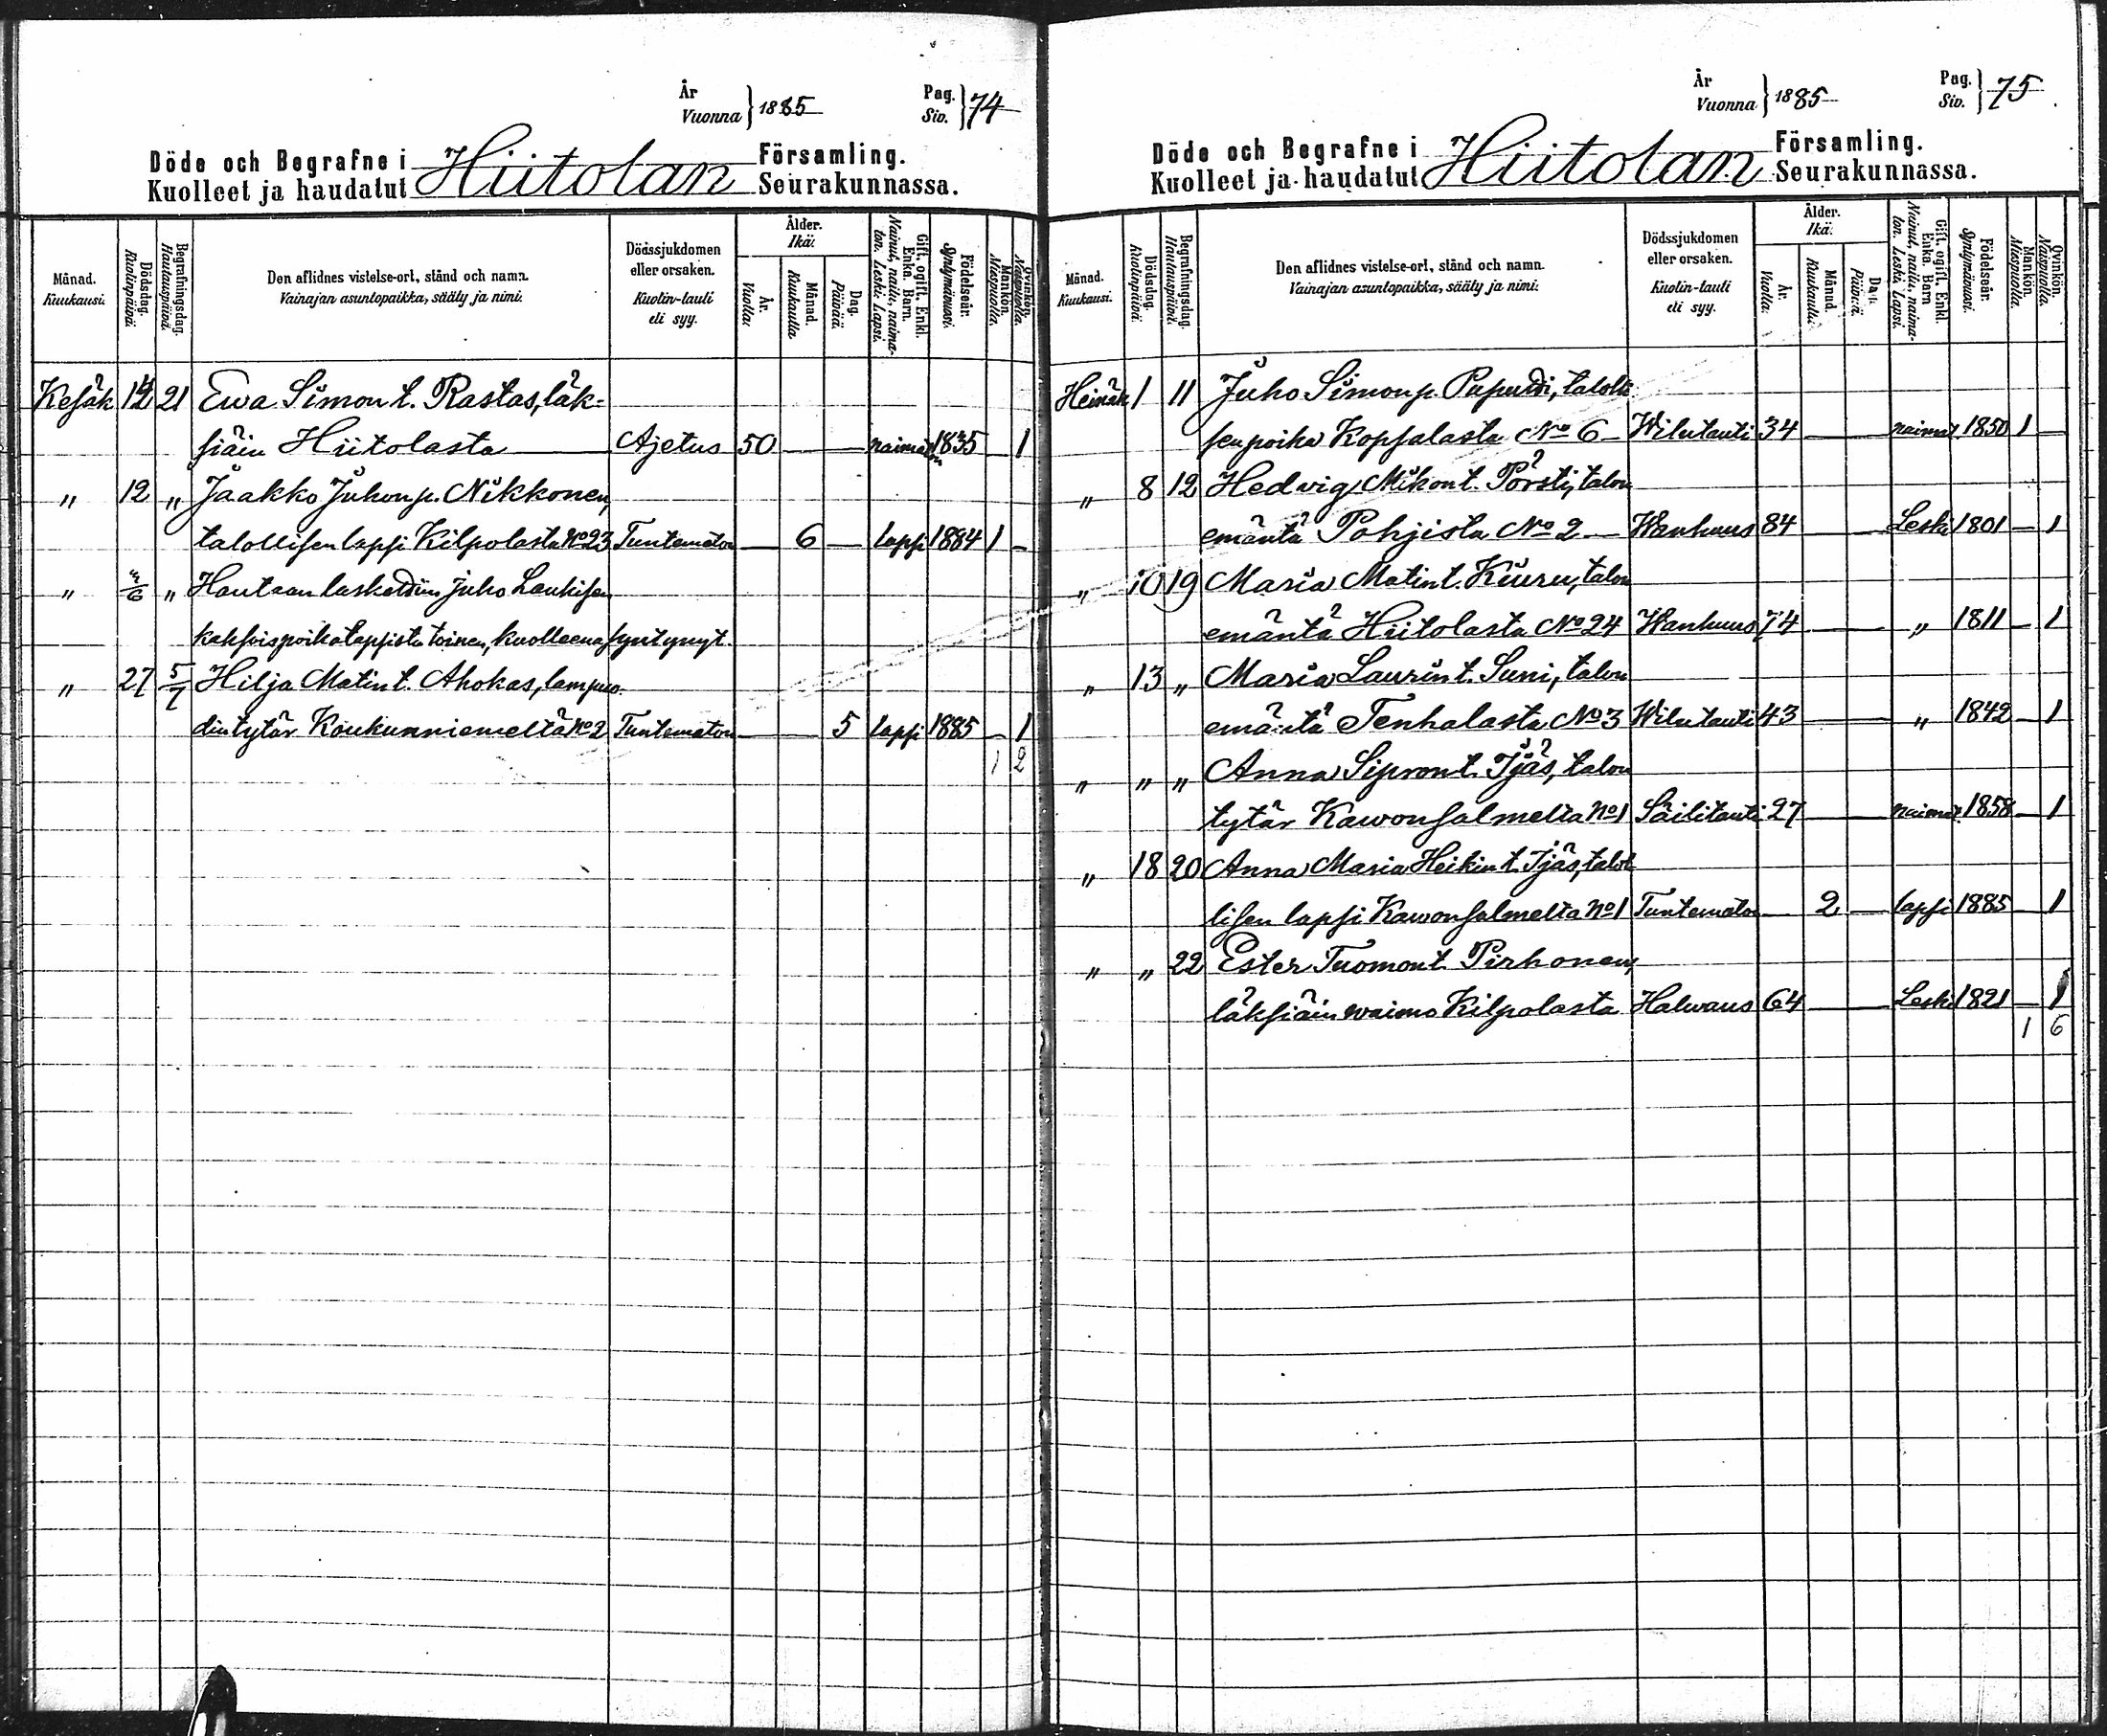 År
Vuonna } 1885
Pag.
Siv. } 74
Döde och Begrafne i
Kuolleet ja haudatut Hiitolan Församling.
Seurakunnassa.
Månad.
Kuukausi.
Dödsdag.
Kuolinpäivä.
Begrafningsdag.
Hautauspäivä.
Den aflidnes vistelse-ort, stånd och namn.
Vainajan asuntopaikka, sääty ja nimi.
Dödssjukdomen
eller orsaken.
Kuolin-tauti
eli syy.
Ålder.
Ikä:
År.
Vuotta:
Månad.
Kuukautta
Dag.
Päivää.
Gift, ogift, Enkl.
Enka. Barn.
Nainut, naitu, naima-
ton. Leski. Lapsi.
Födelseår.
Syntymävuosi.
Mankön.
Miespuolia.
Qvinkön.
Naispuolia.
Kesäk 12 21 Ewa Simon t. Rastas, läk-
siäin Hiitolasta Ajetus 50 — — naimaton 1835 — 1
„ 12 „ Jaakko Juhonp. Nikkonen,
talollisen lapsi Kilpolasta No 23 Tuntematon — 6 — lapsi 1884 1 —
„ „ Hautaan laskettiin Juho Laukisen
kaksoispoikalapsista toinen, kuolleena syntynyt.
„ 27 5/7 Hilja Matint. Ahokas, lampuo-
dintytär Koukunniemeltä No 2 Tuntematon — — 5 lapsi 1885 — 1
1 2
År
Vuonna } 1885
Pag.
Siv. } 75
Döde och Begrafne i
Kuolleet ja haudatut Hiitolan Församling.
Seurakunnassa.
Månad.
Kuukausi.
Dödsdag.
Kuolinpäivä.
Begrafningsdag.
Hautauspäivä.
Den aflidnes vistelse-ort, stånd och namn.
Vainajan asuntopaikka, sääty ja nimi.
Dödssjukdomen
eller orsaken.
Kuolin-tauti
eli syy.
Ålder.
Ikä:
År.
Vuotta:
Månad.
Kuukautta.
Dag.
Päivää.
Gift, ogift, Enkl.
Enka. Barn
Nainut, naitu, naima-
ton. Leski. Lapsi.
Födelseår.
Syntymävuosi.
Mankön.
Miespuolia.
Qvinkön.
Naispuolia.
Heinäk 1 11 Juho Simonp. Puputti, talolli
sen poika Kopsalasta No 6 — Wilutauti 34 — naimat 1850 1 —
„ 8 12 Hedvig Mikont. Pörsti, talon
emäntä Pohjista No 2 — Wanhuus 84 — Leski 1801 — 1
„ 10 19 Maria Matint. Kiuru, talon
emäntä Hiitolasta No 24 Wanhuus 74 — „ 1811 — 1
„ 13 „ Maria Laurint. Suni, talon
emäntä Tenhalasta No 3 Wilutauti 43 — „ 1842 — 1
„ „ „ Anna Sipront. Ijäs, talon
tytär Kawonsalmelta No 1 Säilitauti 27 — naimat. 1858 — 1
„ 18 20 Anna Maria Heikint. Ijäs, talol
lisen lapsi Kawonsalmelta No 1 Tuntematon — 2 — lapsi 1885 — 1
„ „ 22 Ester Tuomont. Pirhonen,
läksiäin waimo Kilpolasta Halwaus 64 — Leski 1821 — 1
1 6